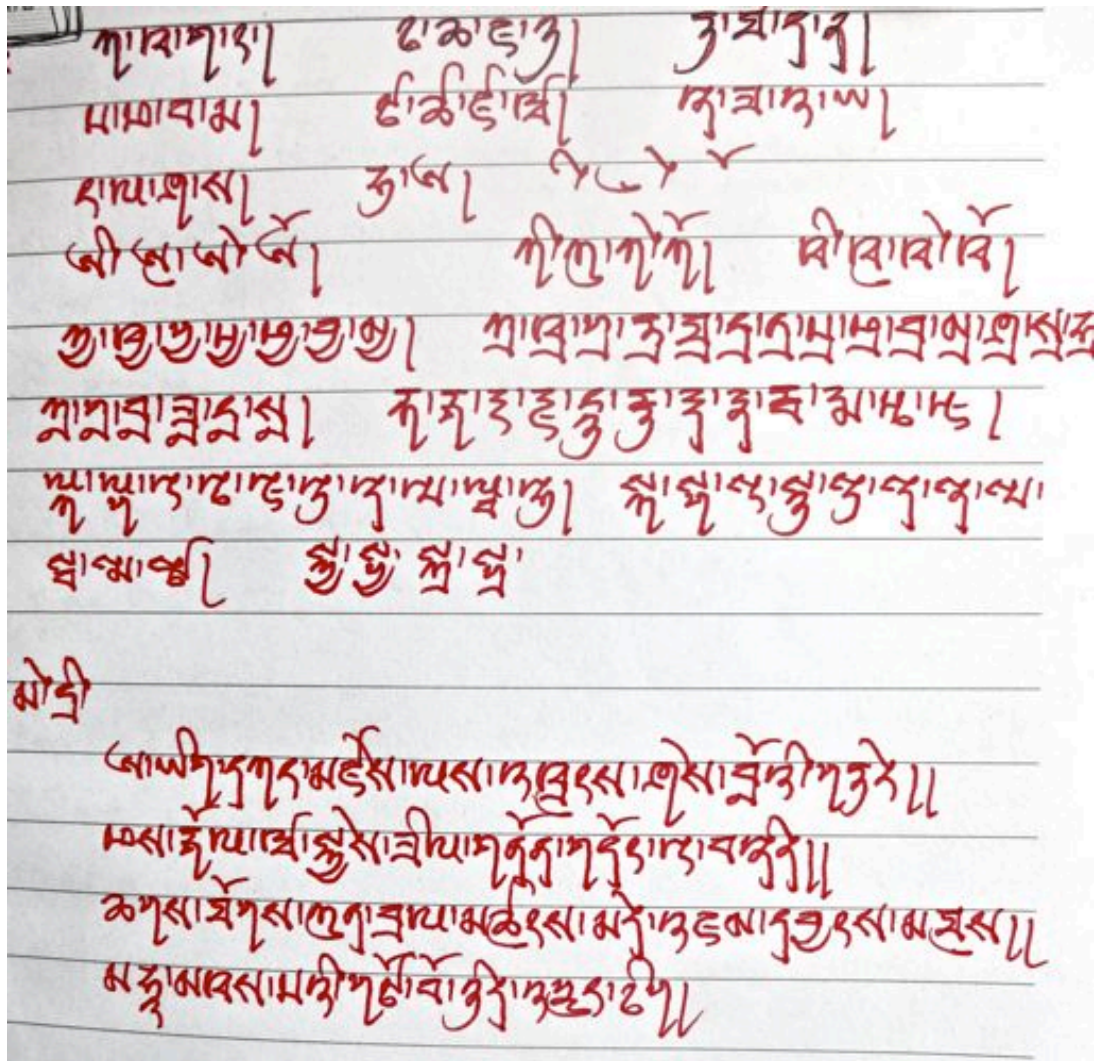 ཀ་ཁ་ག་ང་། ཅ་ཆ་ཇ་ཉ། ཏ་ཐ་ད་ན།
པ་ཕ་བ་མ། ཙ་ཚ་ཛ་ཝ། ཞ་ཟ་འ་ཡ།
ར་ལ་ཤ་ས། ཧ་ཨ། ི ུ ེ ོ
ཨི་ཨུ་ཨེ་ཨོ། ཀི་ཀུ་ཀེ་ཀོ། ཁི་ཁུ་ཁེ་ཁོ།
ཀྱ་ཁྱ་གྱ་པྱ་ཕྱ་བྱ་མྱ། ཀྲ་ཁྲ་གྲ་ཏྲ་ཐྲ་དྲ་ནྲ་པྲ་ཕྲ་བྲ་མྲ་ཤྲ་སྲ་ཧྲ
ཀླ་གླ་བླ་ཟླ་རླ་སླ། རྐ་རྒ་རྔ་རྗ་རྙ་རྟ་རྡ་རྣ་རྦ་རྨ་རྩ་རྫ།
ལྐ་ལྒ་ལྔ་ལྕ་ལྗ་ལྟ་ལྡ་ལྤ་ལྦ་ལྷ། སྐ་སྒ་སྔ་སྙ་སྟ་སྡ་སྣ་སྤ་
སྦ་སྨ་སྩ། སྐྱ་སྒྱ་ སྐྲ་སྒྲ་
ཨ་ཡིག་དཀར་མཛེས་ལས་འཁྲུངས་ཤེས་བློའི་གཏེར།།
ཕས་རྒོལ་ཝ་སྐྱེས་ཟིལ་གནོན་གདོང་ལྔ་བཞིན།།
ཆགས་ཐོགས་ཀུན་བྲལ་མཚུངས་མེད་འཇམ་དབྱངས་མཐུས།།
མ་ཧཱ་མཁས་པའི་གཙོ་བོ་ཉིད་འགྱུར་ཅིག།